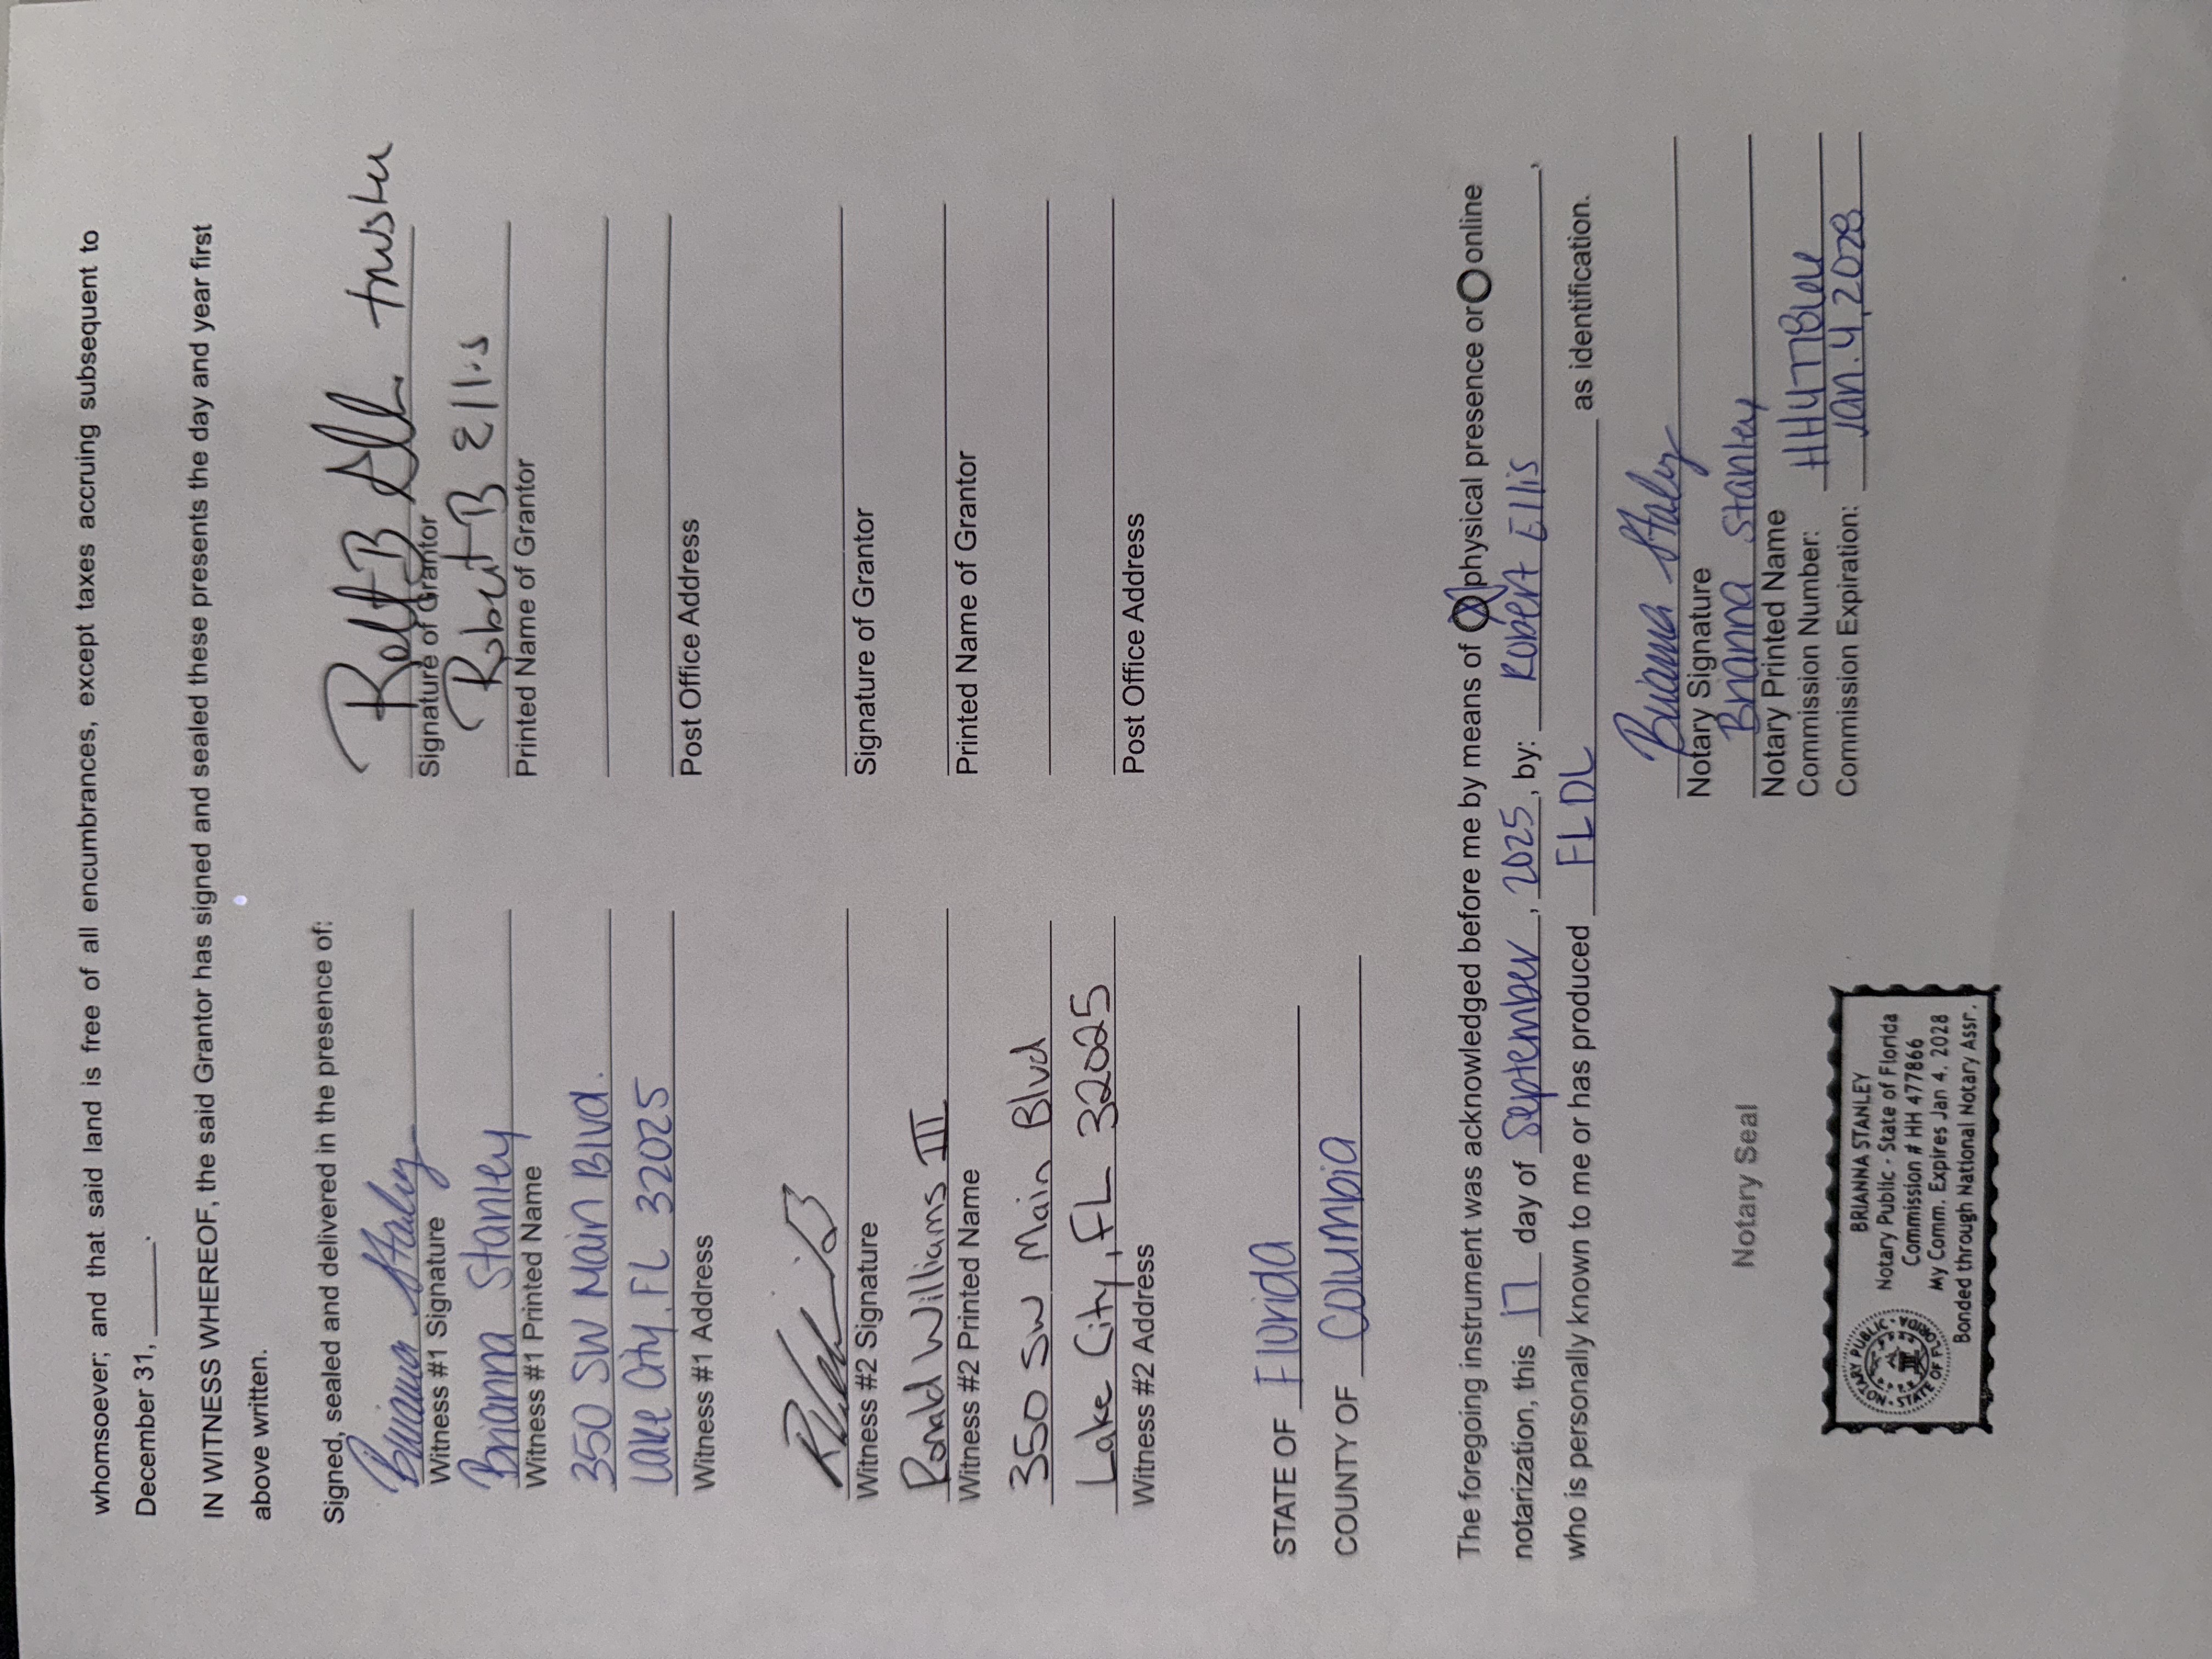 whomsoever; and that said land is free of all encumbrances, except taxes accruing subsequent to
December 31, ______.
IN WITNESS WHEREOF, the said Grantor has signed and sealed these presents the day and year first
above written.
Signed, sealed and delivered in the presence of:
Brianna Stanley
Witness #1 Signature
Brianna Stanley
Witness #1 Printed Name
350 SW Main Blvd.
Lake City, FL 32025
Witness #1 Address
trustee
Signature of Grantor
Robert B Ellis
Printed Name of Grantor
Post Office Address
Witness #2 Signature
Ronald Williams III
Witness #2 Printed Name
350 SW Main Blvd
Lake City, FL 32025
Witness #2 Address
Signature of Grantor
Printed Name of Grantor
Post Office Address
STATE OF Florida
COUNTY OF Columbia
The foregoing instrument was acknowledged before me by means of (X) physical presence or O online
notarization, this 17 day of September, 2025, by: Robert Ellis,
who is personally known to me or has produced FLDL as identification.
Brianna Stanley
Notary Signature
Brianna Stanley
Notary Printed Name
Commission Number: HH477866
Commission Expiration: Jan. 4, 2028
Notary Seal
BRIANNA STANLEY
Notary Public - State of Florida
Commission # HH 477866
My Comm. Expires Jan 4, 2028
Bonded through National Notary Assn.
NOTARY PUBLIC
STATE OF FLORIDA